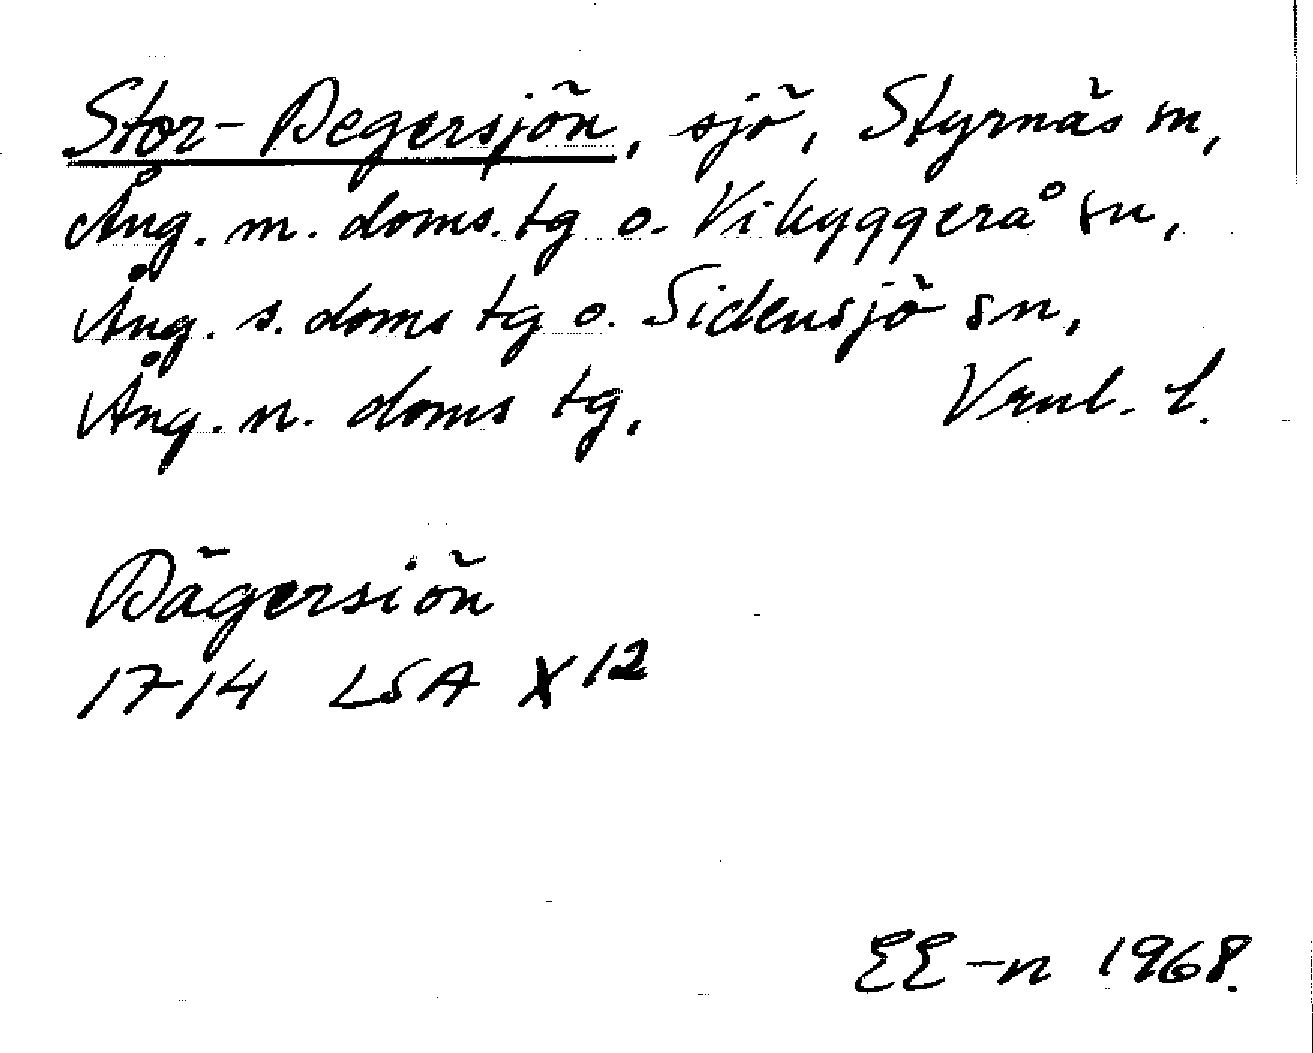 Stor-Degersjön, sjö, Styrnäs sn,
Ång. m. doms. tg o. Vibyggerå sn,
Ång. s. doms tg o. Sidensjö sn,
Ång. n. doms tg, Vrnl. l.
Dägersiön
1714 LSA X 12
EE-n 1968.